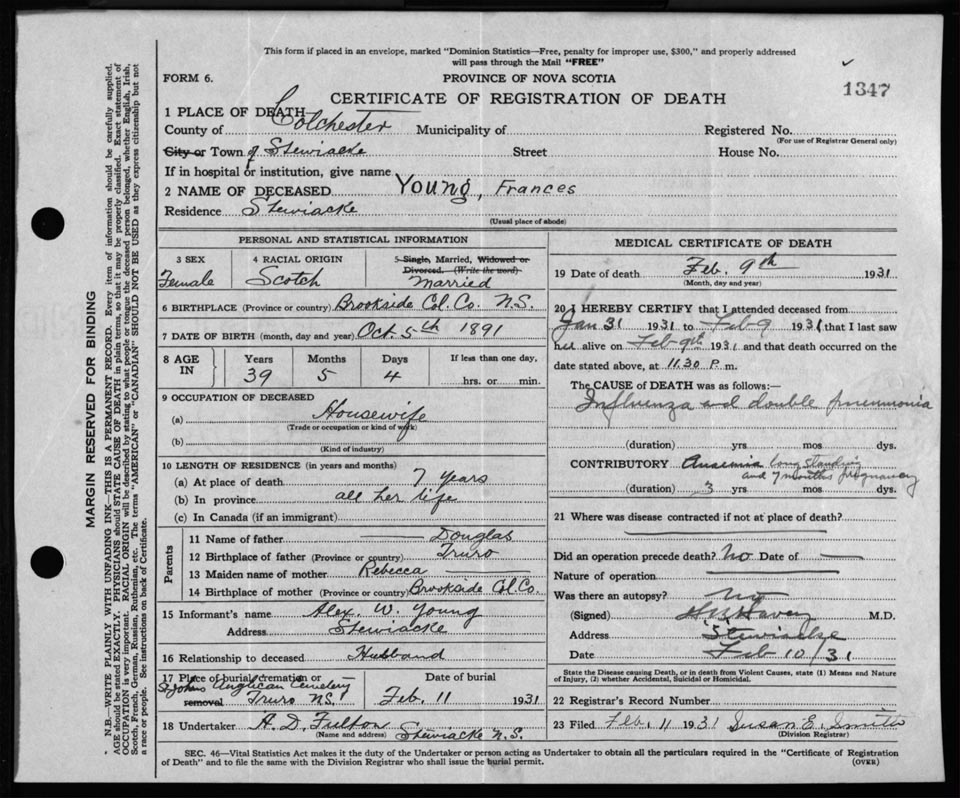 This form if placed in an envelope, marked "Dominion Statistics—Free, penalty for improper use, $300," and properly addressed
will pass through the Mail "FREE"
FORM 6.
PROVINCE OF NOVA SCOTIA
1347
CERTIFICATE OF REGISTRATION OF DEATH
1 PLACE OF DEATH
County of Colchester Municipality of Registered No.
(For use of Registrar General only)
City or Town of Stewiacke Street House No.
If in hospital or institution, give name
2 NAME OF DECEASED Young, Frances
Residence Stewiacke
(Usual place of abode)
PERSONAL AND STATISTICAL INFORMATION
3 SEX
Female
4 RACIAL ORIGIN
Scotch
5 Single, Married, Widowed or
Divorced. (Write the word)
Married
6 BIRTHPLACE (Province or country) Brookside Col. Co. N.S.
7 DATE OF BIRTH (month, day and year) Oct. 5th 1891
8 AGE IN
Years Months Days If less than one day,
39 5 4 hrs. or min.
9 OCCUPATION OF DECEASED
(a) Housewife
(Trade or occupation or kind of work)
(b)
(Kind of industry)
10 LENGTH OF RESIDENCE (in years and months)
(a) At place of death 7 years
(b) In province all her life
(c) In Canada (if an immigrant)
Parents
11 Name of father — Douglas
12 Birthplace of father (Province or country) Truro
13 Maiden name of mother Rebecca —
14 Birthplace of mother (Province or country) Brookside Col. Co.
15 Informant's name Alex. W. Young
Address Stewiacke
16 Relationship to deceased Husband
17 Place of burial, cremation or
removal St Johns Anglican Cemetery
Truro N.S.
Date of burial
Feb. 11 1931
18 Undertaker A. D. Fulton
(Name and address) Stewiacke N.S.
MEDICAL CERTIFICATE OF DEATH
19 Date of death Feb. 9th 1931
(Month, day and year)
20 I HEREBY CERTIFY that I attended deceased from
Jan 31 1931 to Feb 9 1931 that I last saw
her alive on Feb 9th 1931 and that death occurred on the
date stated above, at 11.30 P. m.
The CAUSE of DEATH was as follows:—
Influenza and double pneumonia
(duration) yrs mos dys.
CONTRIBUTORY Anaemia long standing
and 7 months pregnancy
(duration) 3 yrs mos dys.
21 Where was disease contracted if not at place of death?
Did an operation precede death? No Date of —
Nature of operation
Was there an autopsy? no
(Signed) M.D.
Address Stewiacke
Date Feb 10/31
State the Disease causing Death, or in death from Violent Causes, state (1) Means and Nature
of Injury, (2) whether Accidental, Suicidal or Homicidal.
22 Registrar's Record Number
23 Filed Feb. 11 1931 Susan E. Smith
(Division Registrar)
SEC. 46—Vital Statistics Act makes it the duty of the Undertaker or person acting as Undertaker to obtain all the particulars required in the "Certificate of Registration
of Death" and to file the same with the Division Registrar who shall issue the burial permit.
(OVER)
MARGIN RESERVED FOR BINDING
N.B.—WRITE PLAINLY WITH UNFADING INK—THIS IS A PERMANENT RECORD. Every item of information should be carefully supplied.
AGE should be stated EXACTLY. PHYSICIANS should STATE CAUSE OF DEATH in plain terms, so that it may be properly classified. Exact statement of
OCCUPATION is very important. RACIAL ORIGIN will be described by stating to what people or language the deceased person belonged, whether English, Irish,
Scotch, French, German, Russian, Ruthenian, etc. The terms "AMERICAN" or "CANADIAN" SHOULD NOT BE USED as they express citizenship but not
a race or people. See instructions on back of Certificate.